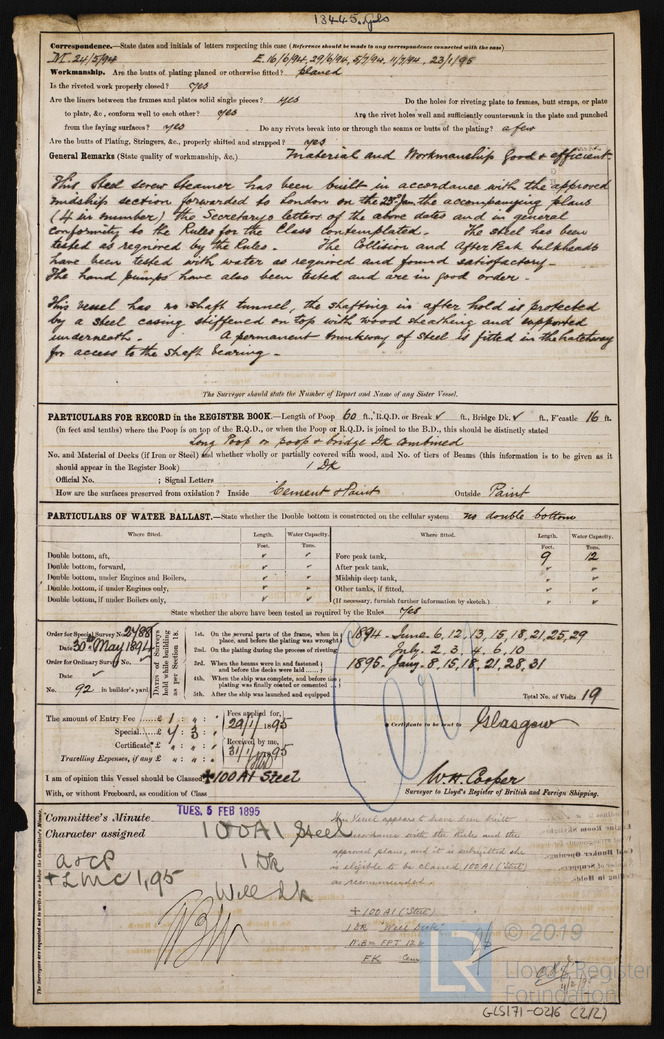 13445. Gls
Correspondence.—State dates and initials of letters respecting this case (Reference should be made to any correspondence connected with the case)
M. 24/5/94 E. 16/6/94, 29/6/94, 5/7/94, 11/7/94, 23/1/95
Workmanship. Are the butts of plating planed or otherwise fitted? planed
Is the riveted work properly closed? yes
Are the liners between the frames and plates solid single pieces? yes Do the holes for riveting plate to frames, butt straps, or plate
to plate, &c., conform well to each other? yes Are the rivet holes well and sufficiently countersunk in the plate and punched
from the faying surfaces? yes Do any rivets break into or through the seams or butts of the plating? a few
Are the butts of Plating, Stringers, &c., properly shifted and strapped? yes
General Remarks (State quality of workmanship, &c.) Material and Workmanship Good & efficient.
This Steel screw Steamer has been built in accordance with the approved
midship section forwarded to London on the 23rd Jan. the accompanying plans
(4 in number) the Secretarys letters of the above dates and in general
conformity to the Rules for the Class contemplated. The steel has been
tested as required by the Rules. The Collision and After Peak bulkheads
have been tested with water as required and found satisfactory.
The hand pumps have also been tested and are in good order.
This vessel has no shaft tunnel, the shafting in after hold is protected
by a steel casing stiffened on top with wood sheathing and supported
underneath. A permanent trunkway of Steel is fitted in the hatchway
for access to the shaft bearing.
The Surveyor should state the Number of Report and Name of any Sister Vessel.
PARTICULARS FOR RECORD in the REGISTER BOOK.—Length of Poop 60 ft., R.Q.D. or Break ✓ ft., Bridge Dk. ✓ ft., F'castle 16 ft.
(in feet and tenths) where the Poop is on top of the R.Q.D., or when the Poop or R.Q.D. is joined to the B.D., this should be distinctly stated
Long Poop or poop & bridge Dk combined
No. and Material of Decks (if Iron or Steel) and whether wholly or partially covered with wood, and No. of tiers of Beams (this information is to be given as it
should appear in the Register Book) 1 Dk
Official No. ; Signal Letters
How are the surfaces preserved from oxidation? Inside Cement & Paint Outside Paint
PARTICULARS OF WATER BALLAST.—State whether the Double bottom is constructed on the cellular system no double bottom
Where fitted. Length. Water Capacity. Where fitted. Length. Water Capacity.
Feet. Tons. Feet. Tons.
Double bottom, aft, ✓ ✓ Fore peak tank, 9 12
Double bottom, forward, ✓ ✓ After peak tank, ✓ ✓
Double bottom, under Engines and Boilers, ✓ ✓ Midship deep tank, ✓ ✓
Double bottom, if under Engines only, ✓ ✓ Other tanks, if fitted, ✓ ✓
Double bottom, if under Boilers only, ✓ ✓ (If necessary, furnish further information by sketch.)
State whether the above have been tested as required by the Rules yes
Order for Special Survey No. 2488
Date 30th May 1894
Order for Ordinary Survey No. ✓
Date ✓
No. 92 in builder's yard.
Dates of Surveys held while building as per Section 18.
1st. On the several parts of the frame, when in place, and before the plating was wrought 1894 - June 6, 12, 13, 15, 18, 21, 25, 29
2nd. On the plating during the process of riveting July. 2, 3, 4, 6, 10
3rd. When the beams were in and fastened, and before the decks were laid 1895 - Jany. 8, 15, 18, 21, 28, 31
4th. When the ship was complete, and before the plating was finally coated or cemented
5th. After the ship was launched and equipped
Total No. of Visits 19
The amount of Entry Fee £ 1 : " : "
Special £ 4 : 3 : "
Certificate £ " : " : "
Travelling Expenses, if any £ " : " : "
Fees applied for,
29/1/1895
Received by me,
31/1/95
Certificate to be sent to Glasgow
I am of opinion this Vessel should be Classed ✠100 A1 Steel
With, or without Freeboard, as condition of Class
W. H. Cooper
Surveyor to Lloyd's Register of British and Foreign Shipping.
Committee's Minute TUES. 5 FEB 1895
Character assigned 100A1 Steel
1 Dk
Well dk
a & cp
+ LMC 1,95
The Vessel appears to have been built
in accordance with the Rules and the
approved plans, and it is submitted she
is eligible to be classed 100 A1 (Steel)
as recommended.
+ 100 A1 (Steel)
1 DK "Well Deck"
W.B= FPT 12t
FK Cem
The Surveyors are requested not to write on or below the Committee's Minute.
LR
© 2019
Lloyd's Register
Foundation
GLS171-0216 (2/2)